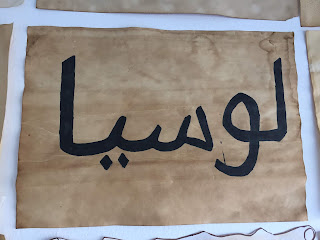 لوسيا